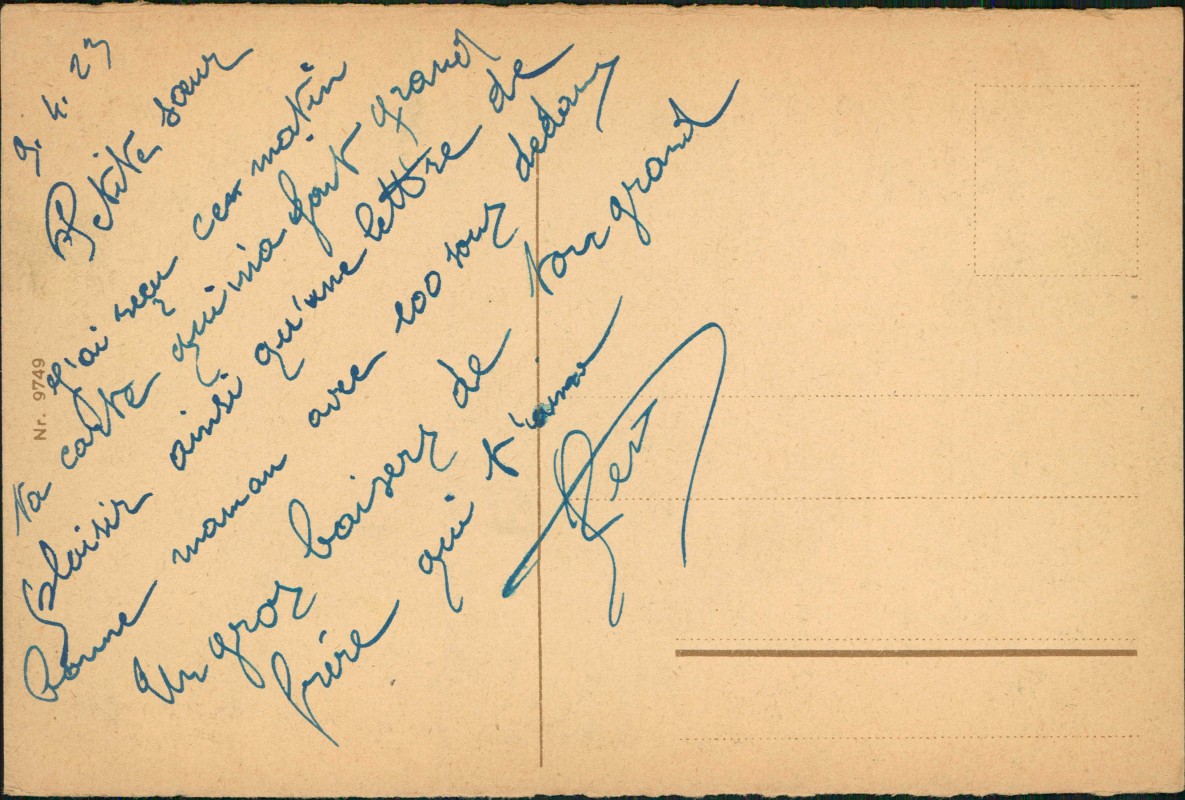 9.4.23
Petite sœur
J'ai reçu ce matin
Ta carte qui m'a fait grand
plaisir ainsi qu'une lettre de
bonne maman avec 100 sous dedans
Un gros baiser de ton grand
frère qui t'aime
Nr. 9749